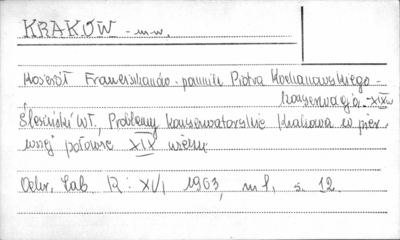 KRAKÓW - m-w.
Kościół Franciszkanów - pomnik Piotra Kochanowskiego -
konserwacja - XIX w
Ślesiński Wł, Problemy konserwatorskie Krakowa w pier
wszej połowie XIX wieku
Ochr. Zab R: XVI 1963, nr 1, s. 12.